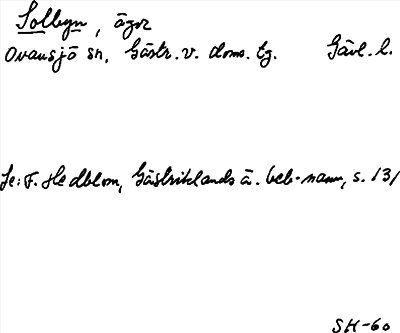 Solbyn, ägor
Ovansjö sn, Gästr. v. doms. tg. Gävl. l.
Se: F. Hedblom, Gästriklands ä. beb-namn, s. 131
SH-60